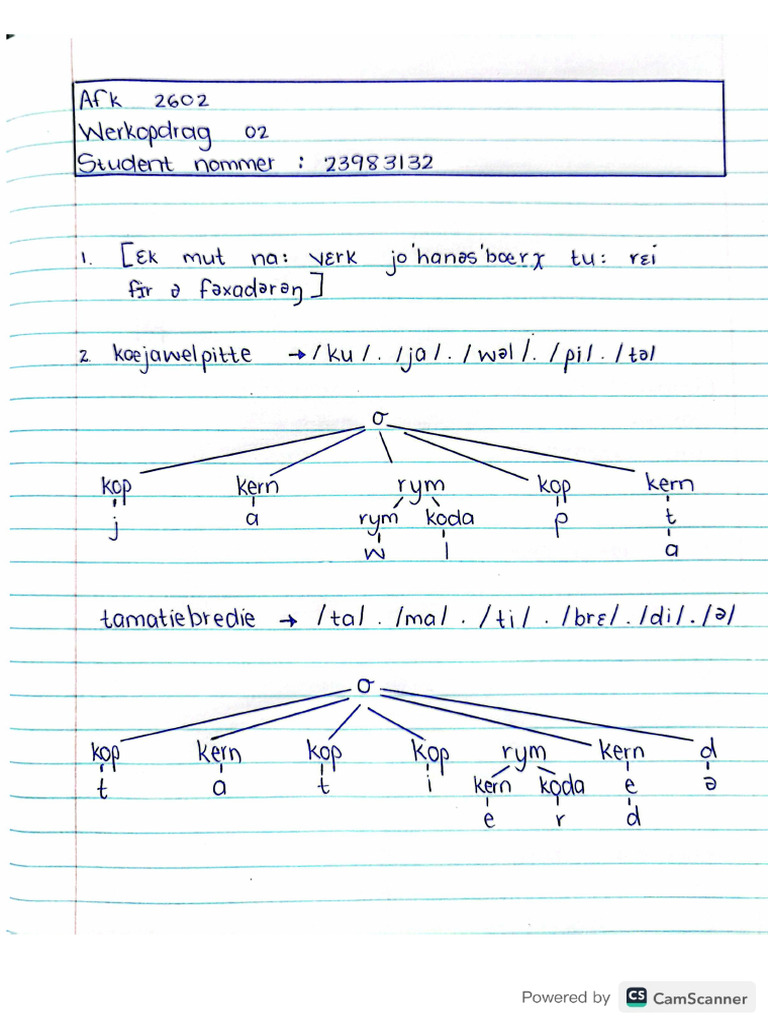 Afk 2602
Werkopdrag 02
Student nommer : 23983132
1. [ɛk mut na: vɛrk jo'hanəs'bœrχ tu: rɛi
fir ə fəxadərəŋ]
2. koejawelpitte → /ku/. /ja/. /wəl/. /pi/. /təl
σ
kop kern rym kop kern
j a rym koda p t
w l a
tamatiebredie → /ta/. /ma/. /ti/. /brɛ/. /di/. /ə/
σ
kop kern kop kop rym kern d
t a t i kern koda e ə
e r d
Powered by CS CamScanner